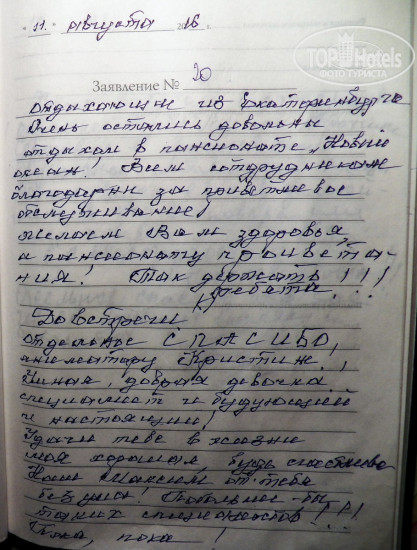 "11" августа 2016
TOPHotels
ФОТО ТУРИСТА
Заявление № 20
отдыхающии из Екатеринбурга
Очень остались довольны
отдыхом в пансионате "Новый
океан! Всем сотрудникам
благодарны за приветливое
обслуживание!
желаем Вам здоровья,
а пансионату процвета-
ния! Так держать !!!
ребята !!!
До встречи
отдельное СПАСИБО,
аниматору Кристин !
Умная, добрая девочка
специалист и будующий
и настоящий!
Удачи тебе в жизни
моя хорошая, будь счастлива
Наш Максим от тебя
без ума! Побольше бы
таких специалистов !!!
Пока, пока !